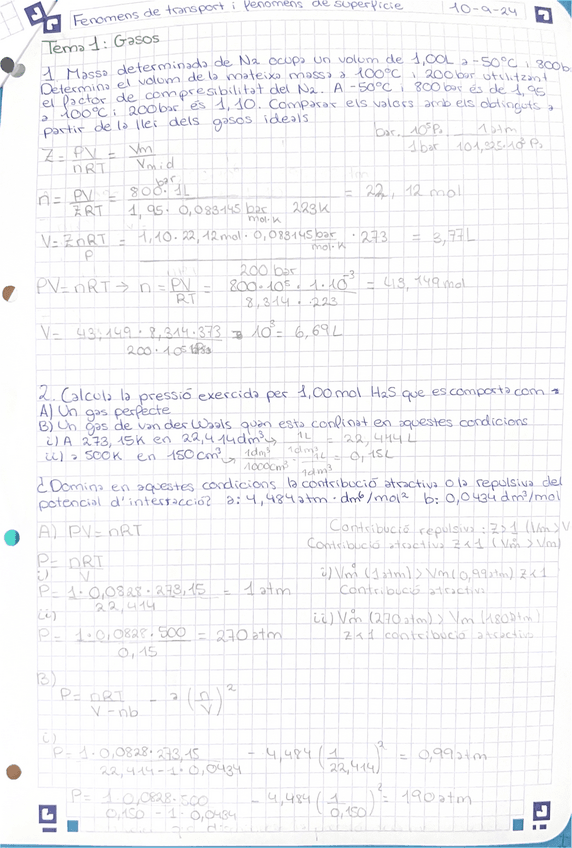 Fenomens de transport i fenomens de superficie 10-9-24
Tema 1: Gasos
1. Massa determinada de N2 ocupa un volum de 1,00L a -50°C i 800b
Determina el volum de la mateixa massa a 100°C i 200bar utilitzant
el factor de compresibilitat del N2. A -50°C i 800bar és de 1,95
a 100°C i 200bar és 1,10. Comparar els valors amb els obtinguts a
partir de la llei dels gasos ideals
bar. 10⁵Pa / 1bar 1atm / 101,325·10³Pa
Z = PV / nRT = Vm / Vm id
n = PV / ZRT = 800 bar · 1L / 1,95 · 0,083145 bar / mol·K 223K = 22,12 mol
V = ZnRT / P = 1,10 · 22,12mol · 0,083145 bar / mol·K · 273 / 200 bar = 3,77L
PV = nRT → n = PV / RT = 800·10⁵ · 1·10⁻³ / 8,314 · 223 = 43,149mol
V = 43,149 · 8,314 · 373 / 200 · 10⁵ 10³ = 6,69L
2. Calcula la pressió exercida per 1,00mol H2S que es comporta com a
A) Un gas perfecte
B) Un gas de van der Waals quan esta confinat en aquestes condicions
i) A 273,15K en 22,414dm³ → 1L / 1dm³ = 22,414L
ii) a 500K en 150cm³ → 1dm³ / 1000cm³ · 1L / 1dm³ = 0,15L
¿Domina en aquestes condicions la contribució atractiva o la repulsiva del
potencial d'interacció? a: 4,484atm·dm⁶/mol² b: 0,0434dm³/mol
A) PV = nRT
Contribució repulsiva: Z>1 (Vm>V
Contribució atractiva Z<1 (Vm°>Vm)
P = nRT / V
i)
P = 1·0,0828·273,15 / 22,414 = 1atm
i) Vm° (1atm) > Vm (0,99atm) Z<1
Contribució atractiva
ii)
P = 1·0,0828·500 / 0,15 = 270atm
ii) Vm° (270atm) > Vm (190atm)
Z<1 contribució atractiva
B)
P = nRT / V-nb - a (n / V)²
i)
P = 1·0,0828·273,15 / 22,414-1·0,0434 - 4,484 (1 / 22,414)² = 0,99atm
P = 1·0,0828·500 / 0,150-1·0,0434 - 4,484 (1 / 0,150)² = 190atm